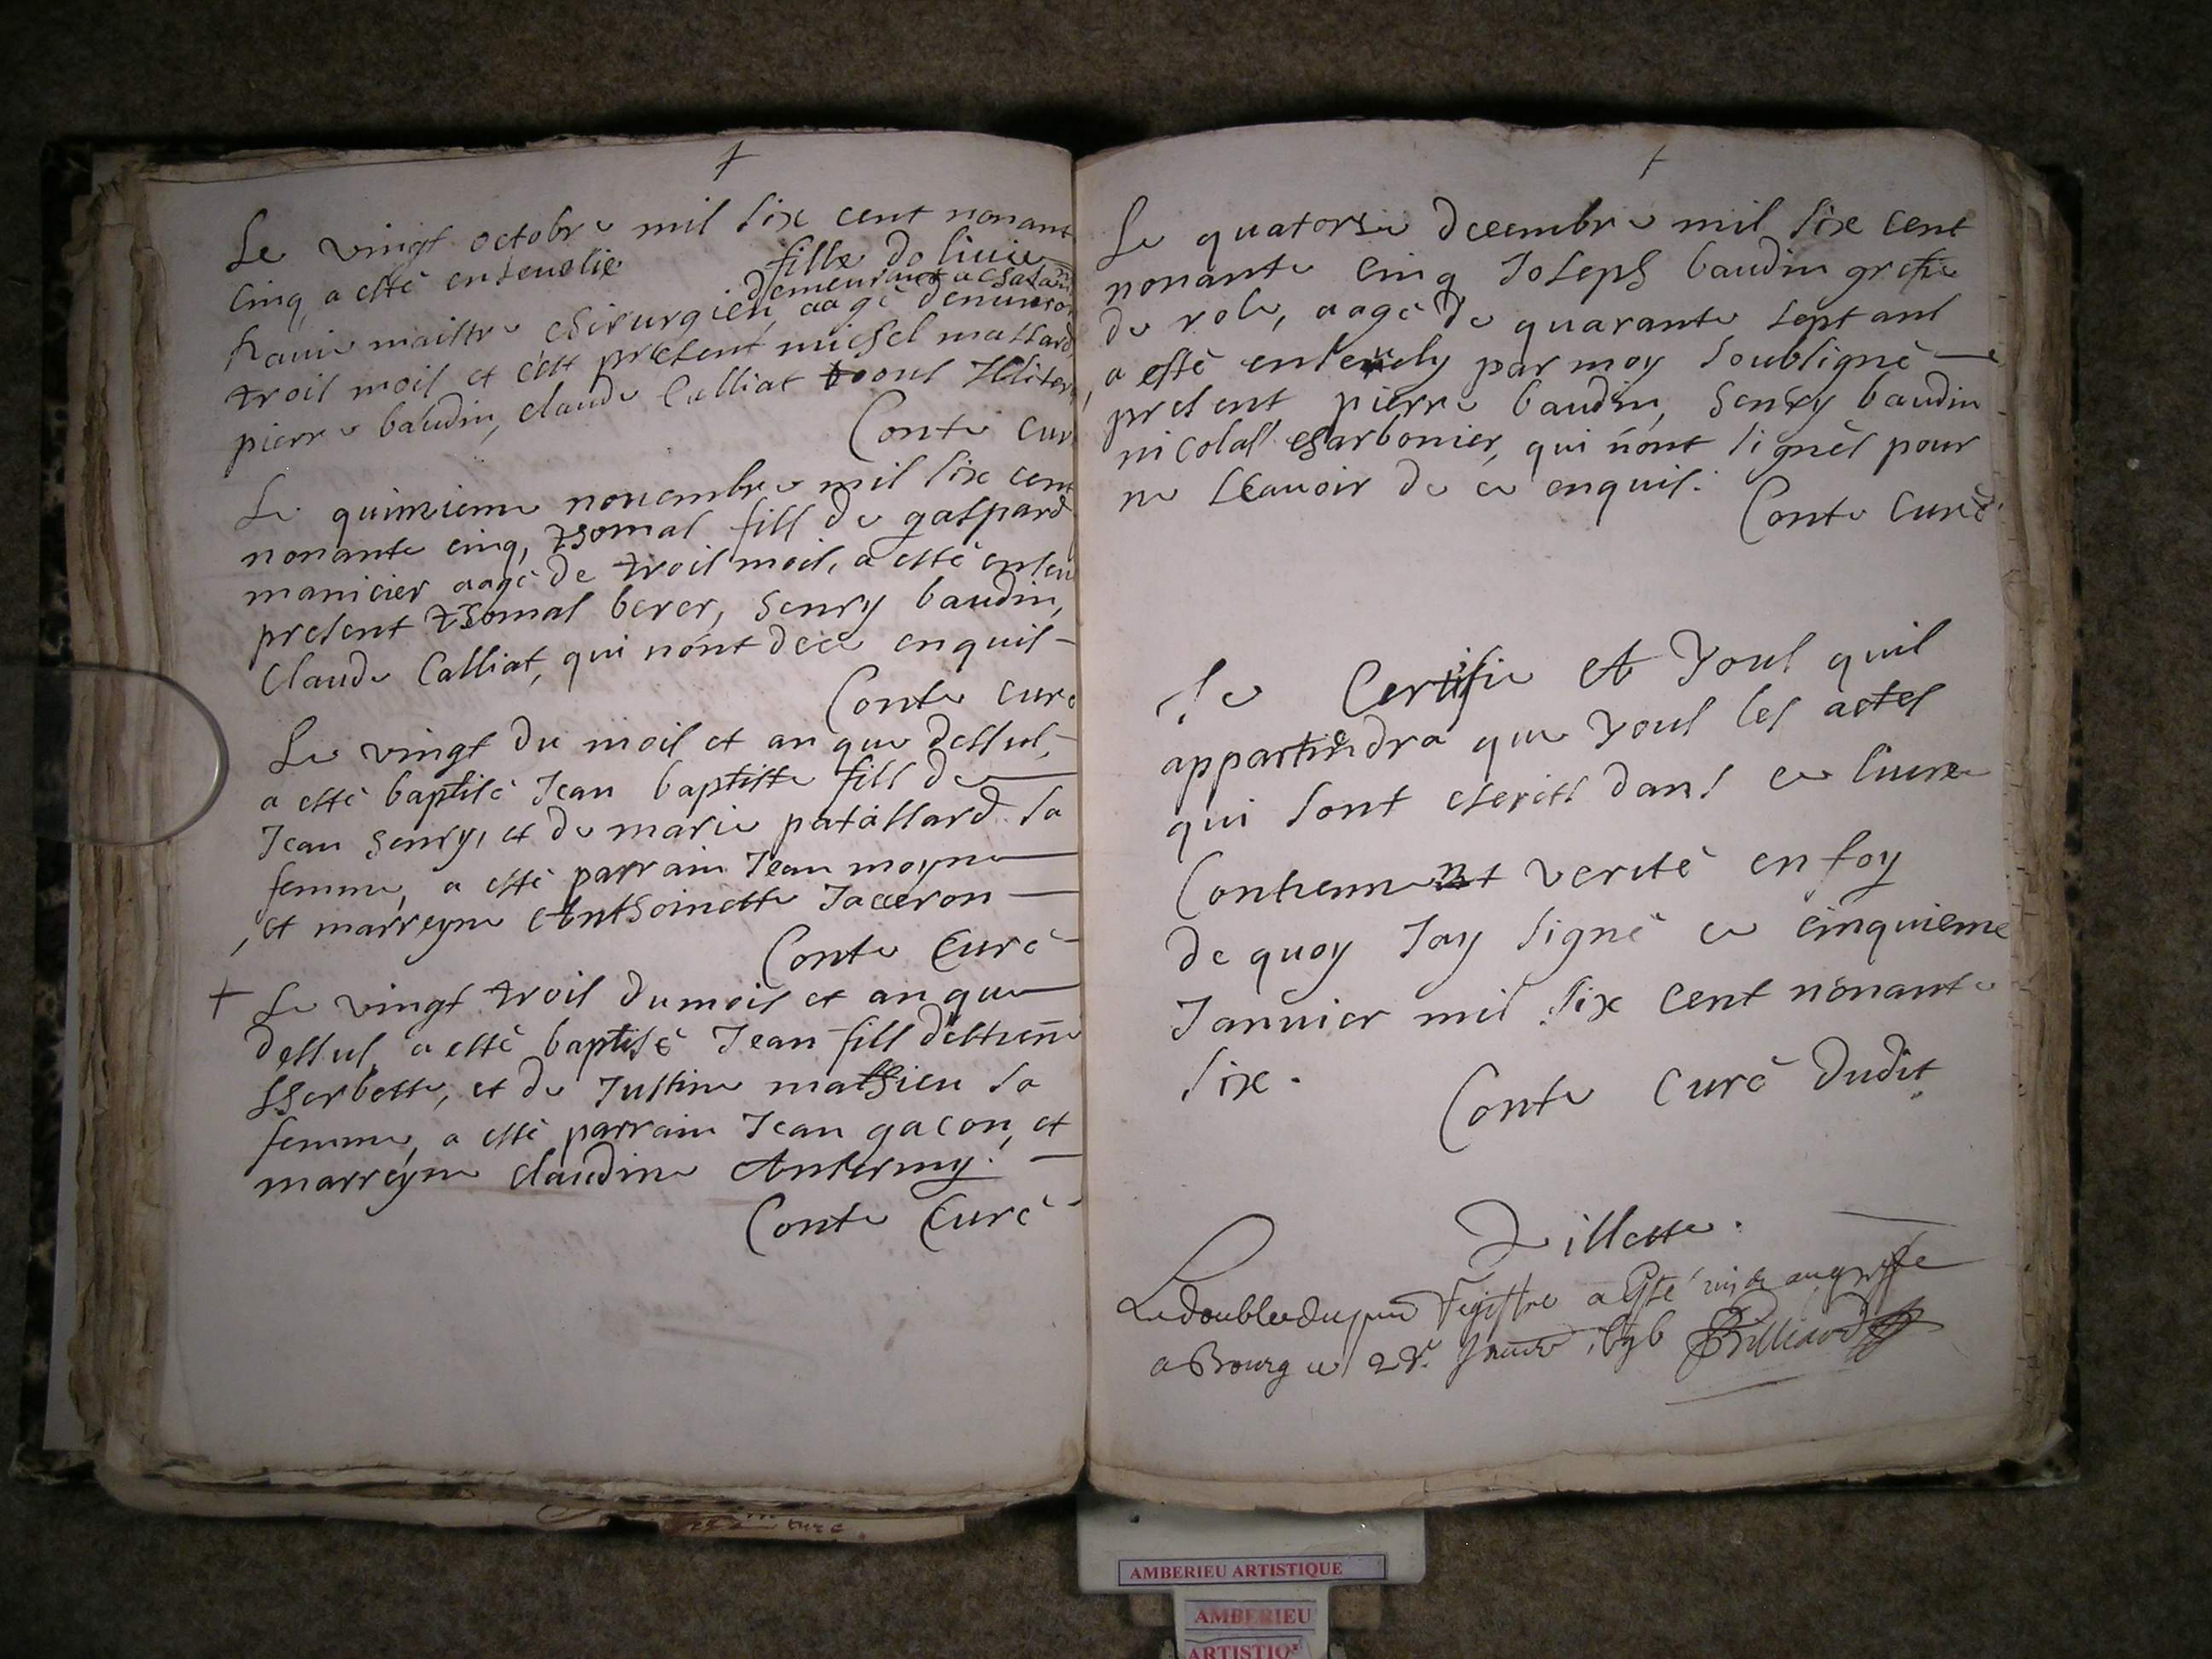 Le vingt octobre mil six cent nonant
cinq a esté ensevelie fille de
demeurant a
maistre chirurgien aagé denviron
trois mois et cest present michel massard
pierre baudin, claude Calliat tous
Conte cur
Le quinzieme novembre mil six cent
nonante cinq, thomas fils de gaspard
manicier aagé de trois mois, a esté ensev
present thomas berer, henry baudin,
Claude Calliat, qui nont de ce enquis
Conte curé
Le vingt du mois et an que dessus,
a esté baptisé Jean baptiste fils de
Jean henry, et de marie patassard sa
femme, a esté parrain Jean moyne
et marreyne Anthoinette Jaceron
Conte Curé
+ Le vingt trois du mois et an que
dessus a esté baptisé Jean fils destienne
et de Justine mathieu sa
femme, a esté parrain Jean gacon, et
marreyne claudine
Conte Curé
Le quatorse decembre mil six cent
nonante cinq Joseph baudin
de role, aagé de quarante sept ans
a esté ensevely par moy soubsigné
present pierre baudin, henry baudin
nicolas charbonier, qui nont signés pour
ne scavoir de ce enquis.
Conte Curé
Je Certifie et tous quil
appartiendra que tous les actes
qui sont escrits dans ce livre
Contiennent verité en foy
de quoy Jay signé ce cinquieme
Janvier mil six cent nonante
six.
Conte Curé dudit
Villette.
Le double du pnt registre a esté mis au greffe
a Bourg ce
AMBERIEU ARTISTIQUE
AMBERIEU
ARTISTIQ